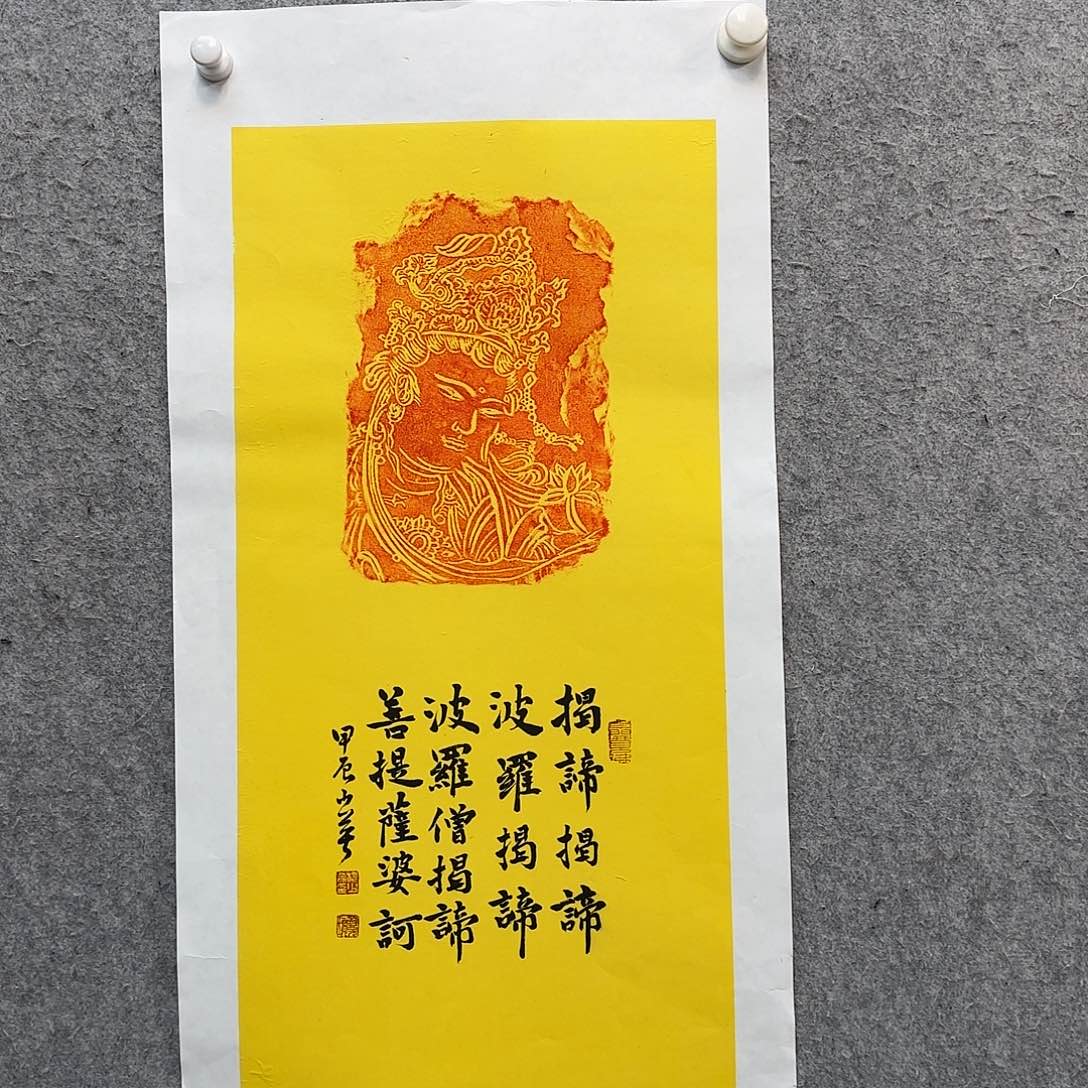 揭諦揭諦
波羅揭諦
波羅僧揭諦
菩提薩婆訶
甲辰